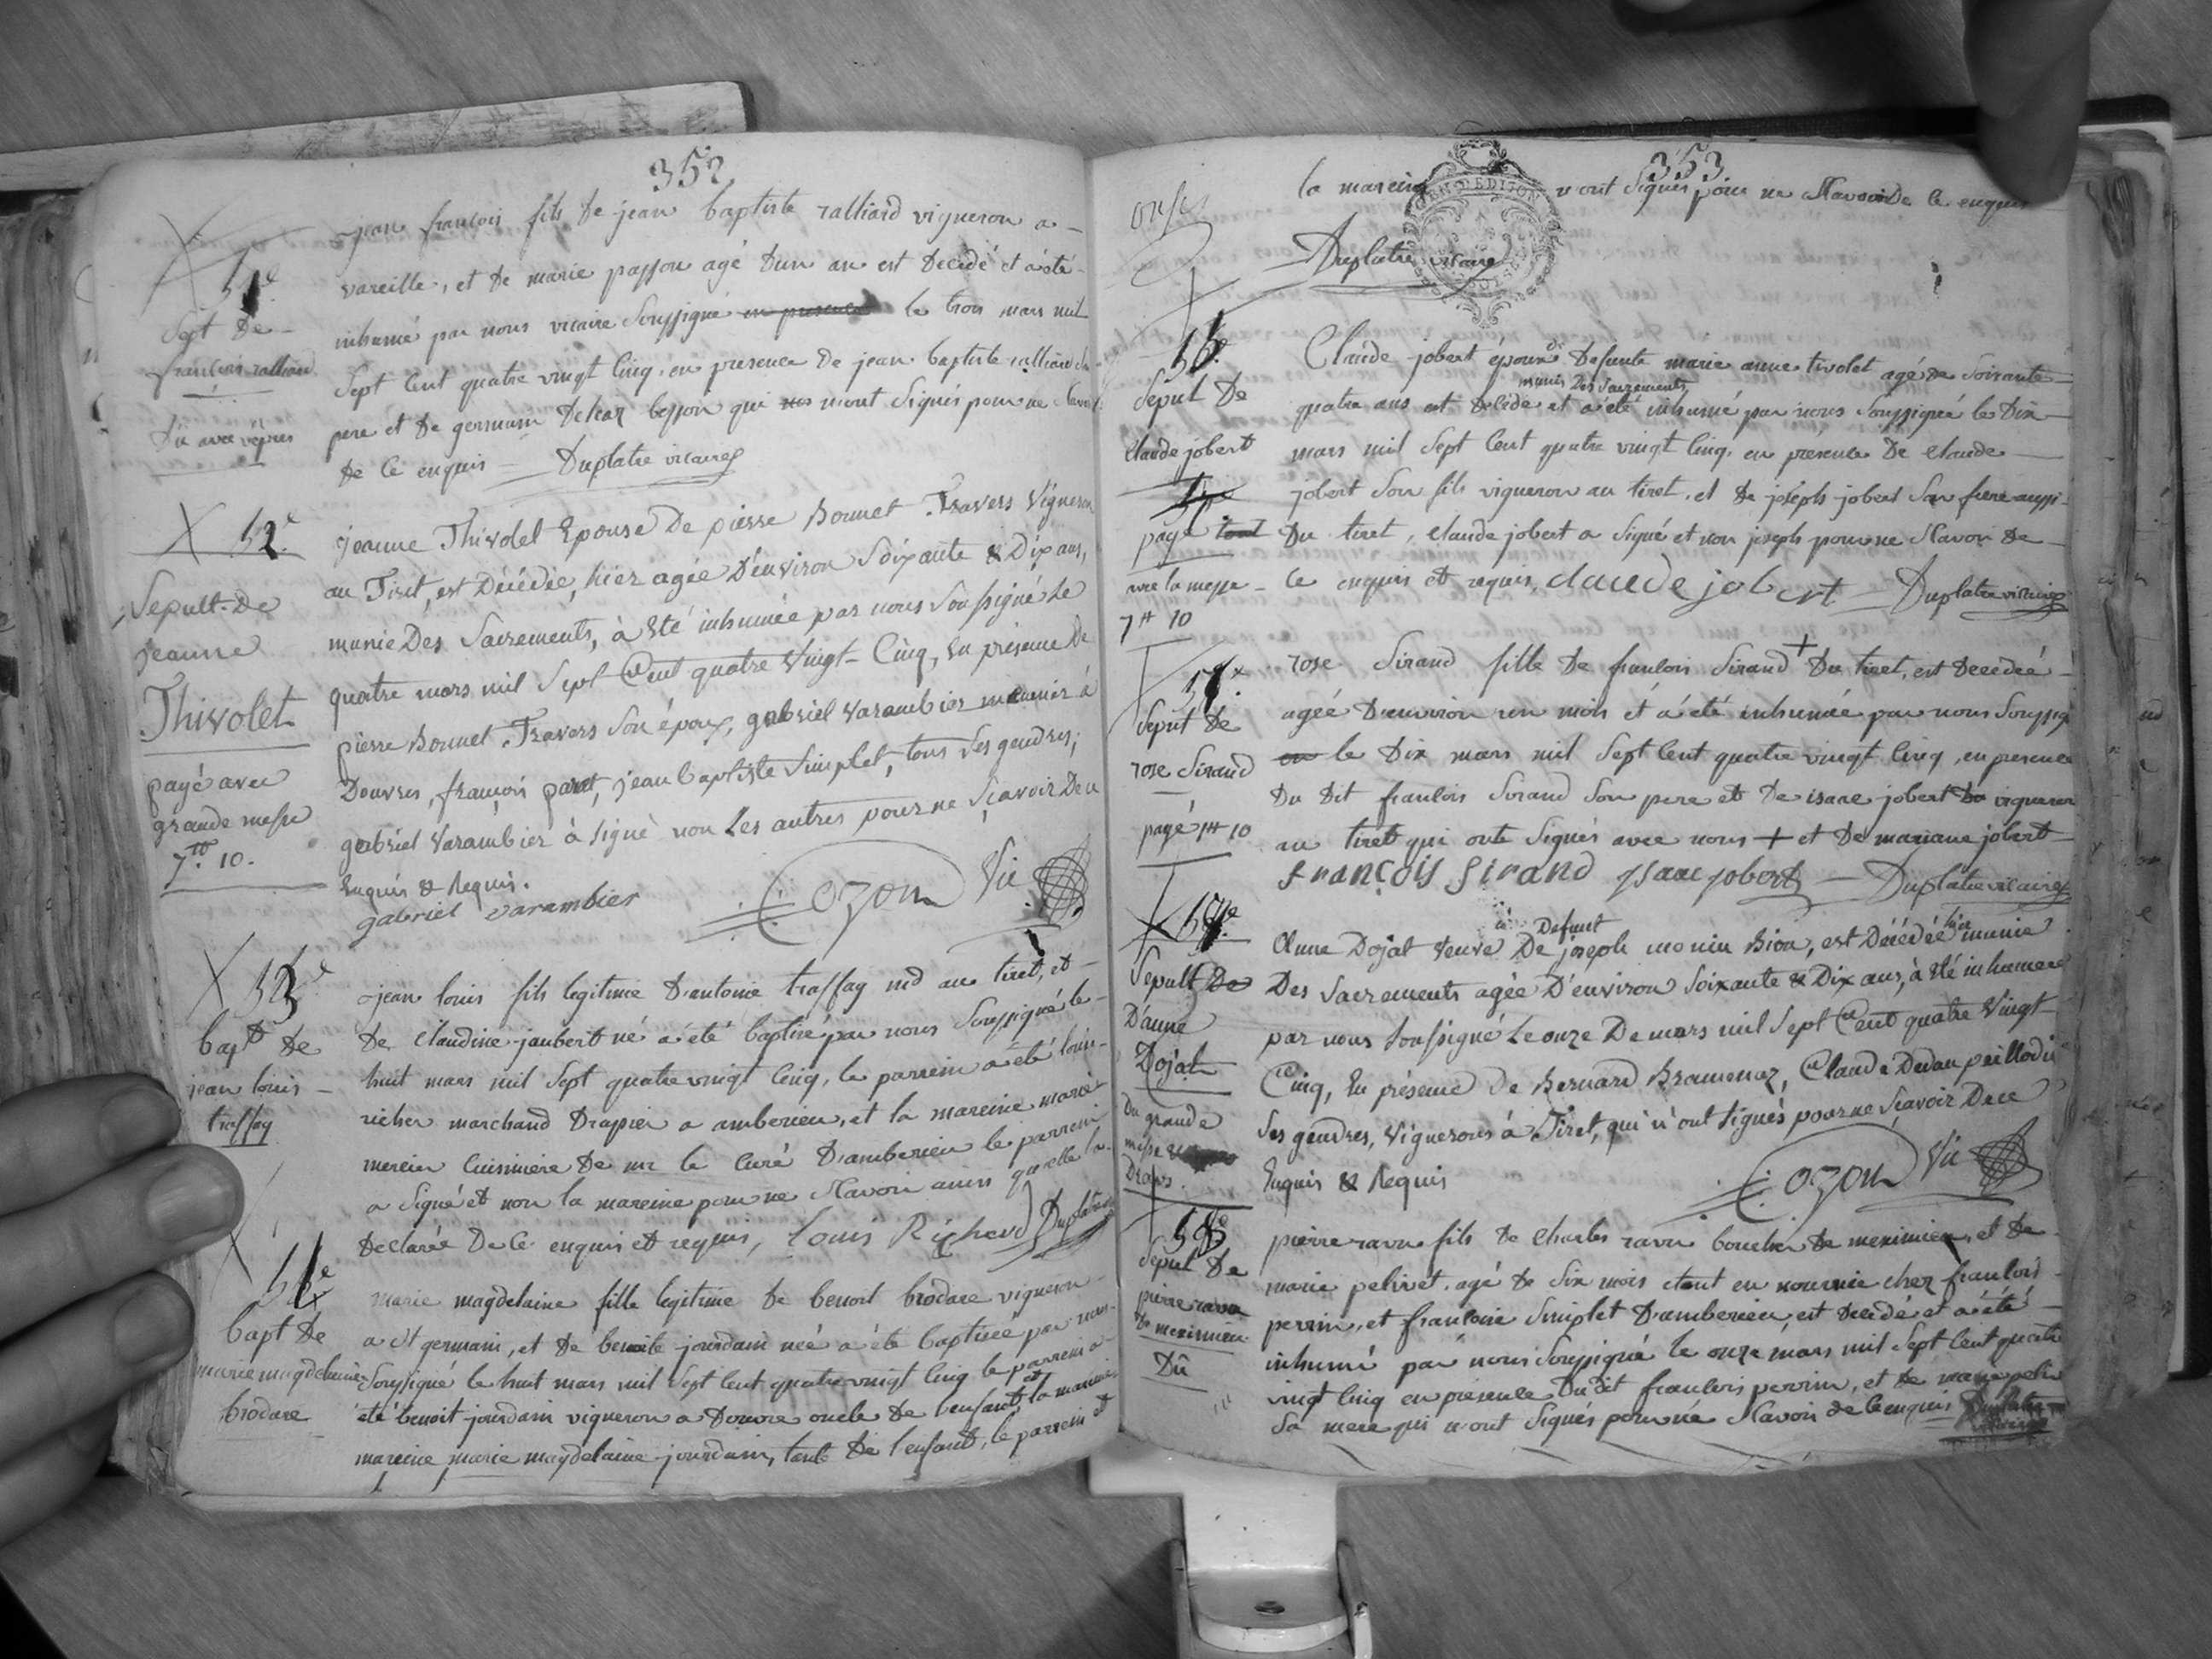 352
51e
Sept de
francois ralliard
Dû avec vêpres
jean francois fils de jean baptiste ralliard vigneron a
vareille, et de marie passon agé d'un an est decedé et a été
inhumé par nous vicaire soussigné en presence le trois mars mil
sept cent quatre vingt cinq, en presence de jean baptiste ralliard son
pere et de germain besson qui nos n'ont signés pour ne slavoir
de ce enquis Duplatre vicaire
52e
Sepult. De
jeanne
Thivolet
payé avec
grande messe
7# 10.
jeanne Thivolet Epouse De pierre Bonnet Travers Vigneron
au Tiret, est Décédée, hier agée D'environ Soixante & Dix ans,
munie Des Sacrements, à été inhumée par nous soussigné Le
quatre mars mil Sept Cent quatre Vingt Cinq, En présence De
pierre Bonnet Travers Son époux, gabriel Varambier meunier à
Douvres, françois paret, jean baptiste Simplet, tous Ses gendres;
gabriel Varambier à signé non Les autres pour ne Sçavoir De ce
Enquis & Requis.
gabriel varambier Cozon Vic
53e
bapt de
jean louis
traffay
jean louis fils legitime d'antoine traffay md au tiret, et
de claudine jaubert né a été baptisé par nous soussigné le
huit mars mil sept quatre vingt cinq, le parrein a été louis
richer marchand drapier a amberieu, et la mareine marie
mercier cuisiniere de mr le curé d'amberieu le parrein
a signé et non la mareine pour ne slavoir ainsi qu'elle l'a
declaré de ce enquis et requis, Louis Richerd Duplatre
54e
bapt de
marie magdelaine
brodare
marie magdelaine fille legitime de benoit brodare vigneron
a st germain, et de benoite jourdain née a été baptisée par nous
soussigné le huit mars mil sept cent quatre vingt cinq le parrein a
été benoit jourdain vigneron a douvre oncle de l'enfant et la mareine
mareine marie magdelaine jourdain, tante de l'enfant, le parrein et
353
la mareine n'ont signés pour ne slavoir de ce enquis
Duplatre vicaire
56e
Sepul de
claude jobert
payé tout
avec la messe
7# 10
Claude jobert époux de defunte marie anne tivolet agé de soixante
munis des sacrements
quatre ans est decédé et a été inhumé par nous soussigné le dix
mars mil sept cent quatre vingt cinq, en présence de claude
jobert son fils vigneron au tiret, et de joseph jobert son frere aussi
du tiret, claude jobert a signé et non joseph pour ne slavoir de
ce enquis et requis, claude jobert Duplatre vicaire
57e
Sepul de
rose Sirand
payé 1# 10
rose Sirand fille de francois Sirand + du tiret, est decedée
agée d'environ un mois et a été inhumée par nous soussigé
en le dix mars mil sept cent quatre vingt cinq, en presence
du dit francois Sirand son pere et de isaac jobert du vigneron
au tiret qui ont signés avec nous + et de mariane jobert
François Sirand ysaac jobert Duplatre vicaire
Sepult De
D'anne
Dojat
Du grande
messe
Draps.
Defunt
Anne Dojat Veuve De joseph monin Bion, est Décédée hier munie
Des Sacrements agée D'environ Soixante & Dix ans, à été inhumée
par nous soussigné Le onze De mars mil Sept Cent quatre Vingt
Cinq, En présence De Bernard Bramenaz, Claude Dedan peillodin
Ses gendres, Vignerons à Tiret, qui n'ont signés pour ne Sçavoir De ce
Enquis & Requis Cozon Vic
Sepul de
pierre ravu
de meximieu
Dû
pierre ravu fils de charles ravu boucher de meximieu, et de
marie pelisset, agé de six mois etant en nourrice chez francois
perrin, et francoise simplet d'amberieu est decedé et a été
inhumé par nous soussigné le onze mars mil sept cent quatre
vingt cinq en presence du dit francois perrin, et de marie
sa mere qui n'ont signés pour ne slavoir de ce enquis Duplatre
vicaire